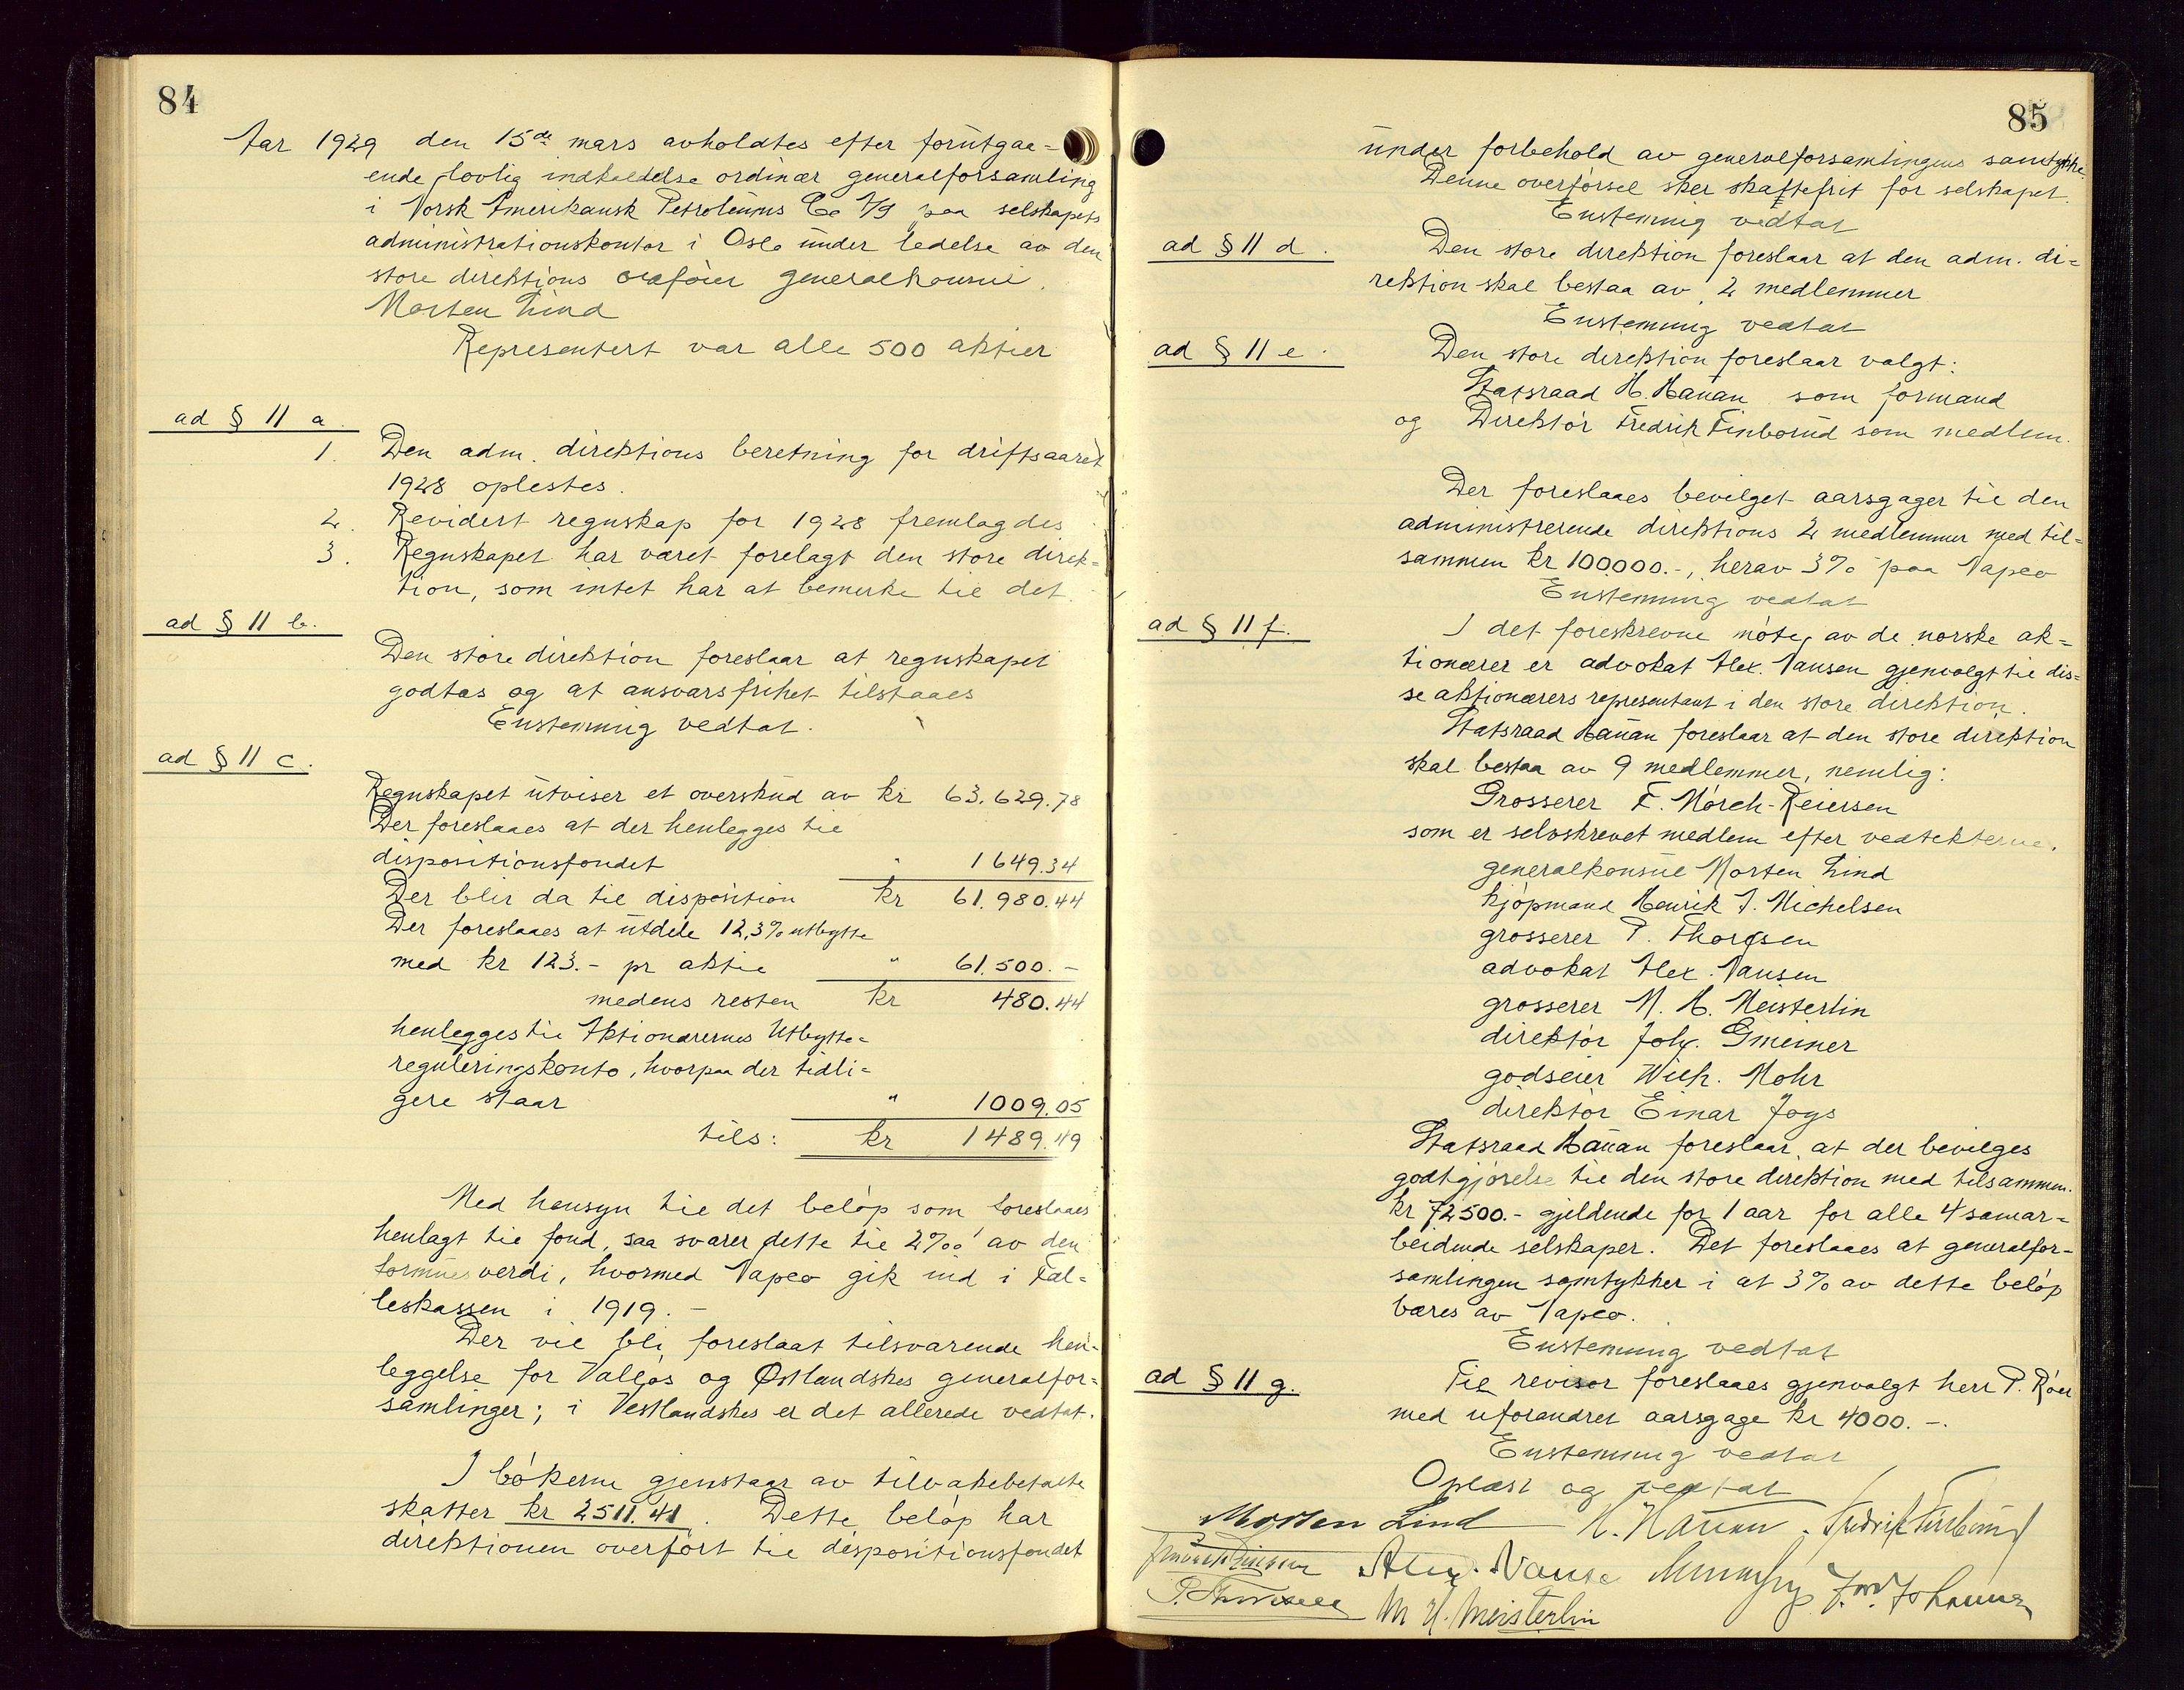 84
Aar 1929 den 15de mars avholdtes efter forutgaa=
ende lovlig indkaldelse ordinær generalforsamling
i Norsk Amerikansk Petroleums Co A/S paa selskapets
administrationskontor i Oslo under ledelse av den
store direktions ordfører generalkonsul
Morten Lind
Representert var alle 500 aktier
ad § 11 a.
1. Den adm. direktions beretning for driftsaaret
1928 oplestes.
2. Revidert regnskap for 1928 fremlagdes
3. Regnskapet har været forelagt den store direk=
tion, som intet har at bemerke til det.
ad § 11 b.
Den store direktion foreslaar at regnskapet
godtas og at ansvarsfrihet tilstaaes
Enstemmig vedtat.
ad § 11 c.
Regnskapet utviser et overskud av kr 63.629.78
Der foreslaaes at der henlegges til
dispositionsfondet " 1649.34
Der blir da til disposition kr 61.980.44
Der foreslaaes at utdele 12,3% utbytte
med kr 123.- pr aktie " 61.500.-
medens resten kr 480.44
henlegges til Aktionærernes Utbytte=
reguleringskonto, hvorpaa der tidli=
gere staar " 1009.05
tils: kr 1489.49
Med hensyn til det beløp som foreslaaes
henlagt til fond, saa svarer dette til 2‰ av den
formuesverdi, hvormed Napco gik ind i Fæl=
leskassen i 1919.-
Der vil bli foreslaat tilsvarende hen-
leggelse for Valløs og Østlandskes generalfor=
samlinger; i Vestlandskes er det allerede vedtat.
I bøkerne gjenstaar av tilbakebetalte
skatter kr 2511.41. Dette beløp har
direktionen overført til dispositionsfondet
85
under forbehold av generalforsamlingens samtykke.
Denne overførsel sker skattefrit for selskapet.
Enstemmig vedtat
ad § 11 d.
Den store direktion foreslaar at den adm. di=
rektion skal bestaa av 2 medlemmer
Enstemmig vedtat
ad § 11 e.
Den store direktion foreslaar valgt:
Statsraad H. Hauan som formand
og Direktør Fredrik Finborud som medlem.
Der foreslaaes bevilget aarsgager til den
administrerende direktions 2 medlemmer med til=
sammen kr 100000.-, herav 3% paa Napco
Enstemmig vedtat
ad § 11 f.
I det foreskrevne møte av de norske ak=
tionærer er advokat Alex. Nansen gjenvalgt til dis=
se aktionærers representant i den store direktion.
Statsraad Hauan foreslaar at den store direktion
skal bestaa av 9 medlemmer, nemlig:
Grosserer F. Mørch-Reiersen
som er selvskrevet medlem efter vedtekterne.
generalkonsul Morten Lind
kjøpmand Henrik J. Michelsen
grosserer P. Thoresen
advokat Alex. Nansen
grosserer M. H. Meisterlin
direktør Joh. Gmeiner
godseier Wilh. Mohr
direktør Einar Joys
Statsraad Hauan foreslaar at der bevilges
godtgjørelse til den store direktion med tilsammen
kr 72500.- gjeldende for 1 aar for alle 4 samar=
beidende selskaper. Det foreslaaes at generalfor=
samlingen samtykker i at 3% av dette beløp
bæres av Napco.
Enstemmig vedtat
ad § 11 g.
Til revisor foreslaaes gjenvalgt herr P. Røer
med uforandret aarsgage kr 4000.-.
Enstemmig vedtat
Oplæst og vedtat
Morten Lind H. Hauan. Fredrik Finborud
Alex. Nansen
P. Thoresen M H. Meisterlin